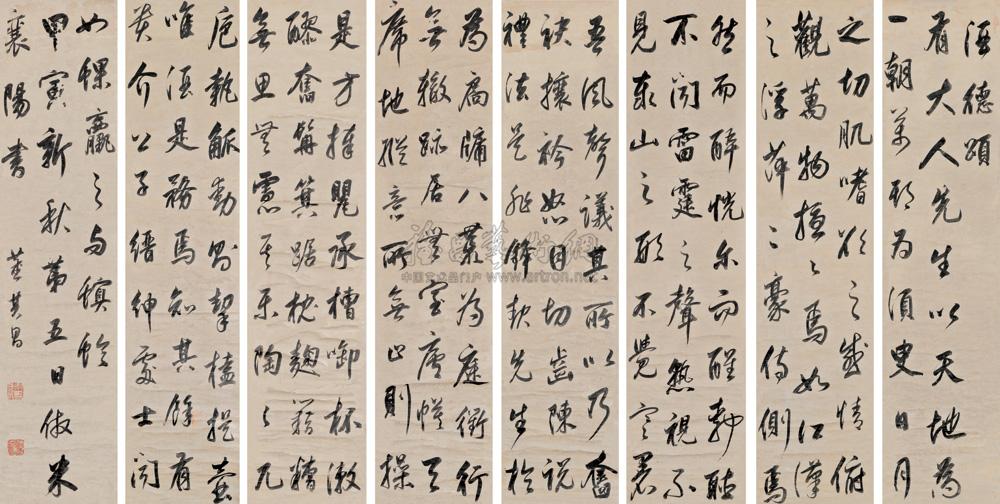 酒德頌
有大人先生以天地為
一朝萬期為須臾日月
之切肌嗜欲之感情俯
觀萬物擾〻焉如江漢
之浮萍二豪侍側焉
然而醉恍爾而醒靜聽
不聞雷霆之聲熟視不
見泰山之形不覺寒暑
吾風聲議其所以乃奮
袂攘衿怒目切齒陳說
禮法是非鋒起先生於
為扃牖八荒為庭衢行
無轍跡居無室廬幙天
席地縱意所無止則操
是方捧罌承槽銜杯漱
醪奮髯箕踞枕麴藉糟
無思無慮其樂陶〻兀
卮執觚動則挈榼提壺
唯酒是務焉知其餘有
貴介公子縉紳處士聞
如蜾蠃之與螟蛉
甲寅新秋第五日倣米
襄陽書 董其昌
雅昌藝術網
中国艺术品门户 www.artron.net